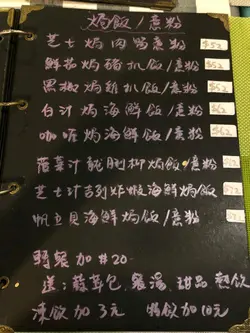 焗飯/意粉
芝士焗肉醬意粉 $52
鮮茄焗豬扒飯/意粉 $52
黑椒焗雞扒飯/意粉 $52
白汁焗海鮮飯/意粉 $62
咖喱焗海鮮飯/意粉 $62
芝士汁吉列炸蝦海鮮焗飯
帆立貝海鮮焗飯/意粉
轉餐加 #20-
送:蒜茸包, 餐湯, 甜品 熱飲
凍飲加3元 特飲加10元